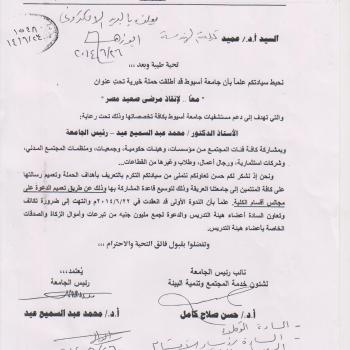 السيد أ.د/ عميد كلية الهندسة
٢٠١٤/٦/٢٦
تحية طيبة وبعد ،،،
نحيط سيادتكم علماً بأن جامعة أسيوط قد أطلقت حملة خيرية تحت عنوان
" معاً .. لإنقاذ مرضى صعيد مصر "
والتي تهدف إلى دعم مستشفيات جامعة أسيوط بكافة تخصصاتها وذلك تحت رعاية:
الأستاذ الدكتور / محمد عبد السميع عيد - رئيس الجامعة
وبمشاركة كافة فئات المجتمع من مؤسسات، وهيئات حكومية، وجمعيات، ومنظمات المجتمع المدني،
وشركات استثمارية، ورجال أعمال، وطلاب وغيرها من القطاعات...
ونحن إذ نشكر لكم حسن تعاونكم نتمنى من سيادتكم التكرم بالتعريف بأهداف الحملة وتعميم رسالتها
على كافة المنتمين إلى جامعتنا العريقة وذلك لتوسيع قاعدة المشاركة بها وذلك عن طريق تعميم الدعوة على
مجالس أقسام الكلية. علماً بأن الندوة الأولى قد انعقدت في ٢٠١٤/٦/٢٢م وانتهت إلى ضرورة تكاتف
وتعاون السادة أعضاء هيئة التدريس والدعوة لجمع مليون جنيه من تبرعات وأموال الزكاة والصدقات
الخاصة بأعضاء هيئة التدريس.
وتفضلوا بقبول فائق التحية والاحترام ،،،
نائب رئيس الجامعة
يُعتمد،،،
لشئون خدمة المجتمع وتنمية البيئة
رئيس الجامعة
أ.د/ حسن صلاح كامل
أ.د/ محمد عبد السميع عيد